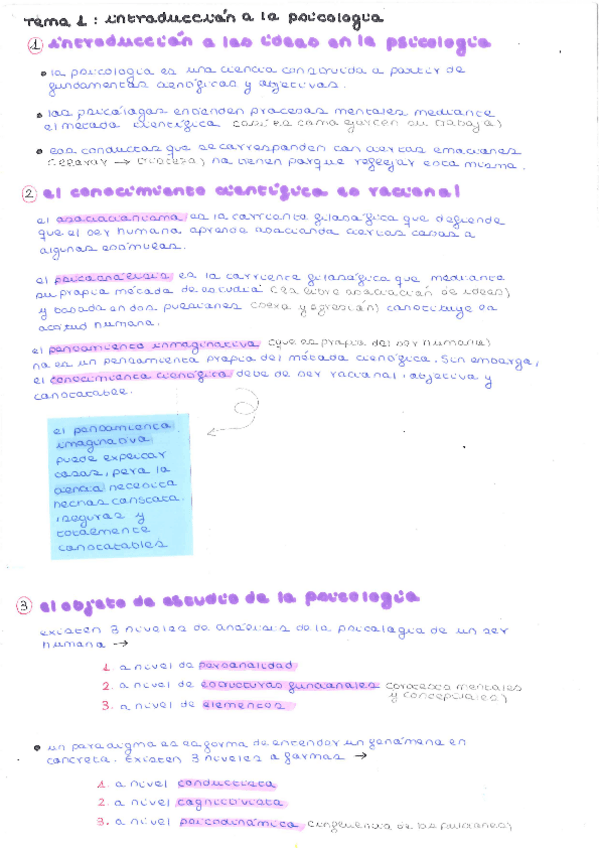 Tema 1: introducción a la psicología
1 introducción a las ideas en la psicología
• la psicología es una ciencia construida a partir de
fundamentos científicos y objetivos.
• los psicólogos entienden procesos mentales mediante
el método científico (así es como ejercen su trabajo)
• esas conductas que se corresponden con ciertas emociones
(llorar → tristeza) no tienen porque reflejar esta misma.
2 el conocimiento científico es racional
el asociacionismo es la corriente filosófica que defiende
que el ser humano aprende asociando ciertas cosas a
algunos estímulos.
el psicoanálisis es la corriente filosófica que mediante
su propio método de estudio (la libre asociación de ideas)
y basada en dos pulsiones (sexo y agresión) constituye la
actitud humana.
el pensamiento imaginativo (que es propio del ser humano)
no es un pensamiento propio del método científico. Sin embargo,
el conocimiento científico debe de ser racional, objetivo y
constatable.
el pensamiento
imaginativo
puede explicar
cosas, pero la
ciencia necesita
hechos
, seguros y
totalmente
constatables
3 el objeto de estudio de la psicología
existen 3 niveles de análisis de la psicología de un ser
humano →
1. a nivel de personalidad
2. a nivel de estructuras funcionales (procesos mentales
y conceptuales)
3. a nivel de elementos
• un paradigma es la forma de entender un fenómeno en
concreto. Existen 3 niveles o formas →
1. a nivel conductista
2. a nivel cognitivista
3. a nivel psicodinámica (influencia de las pulsiones)